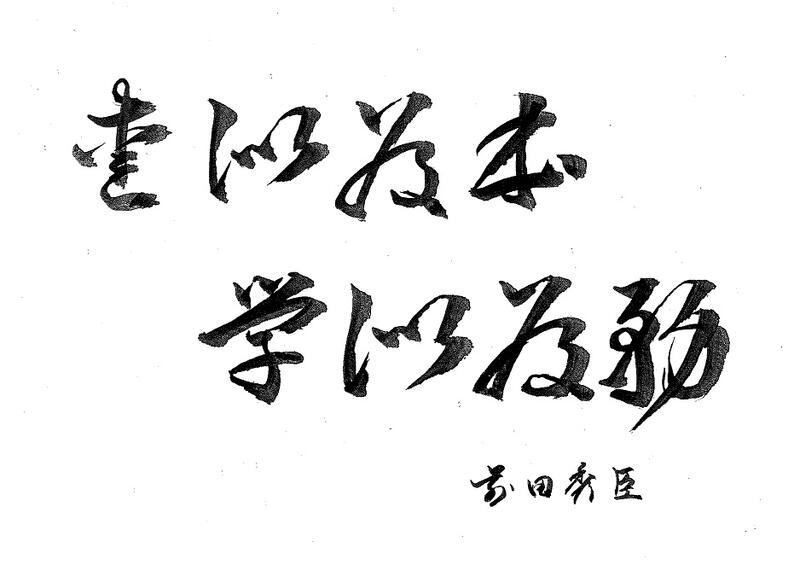 以為本
学以為務
前田秀臣